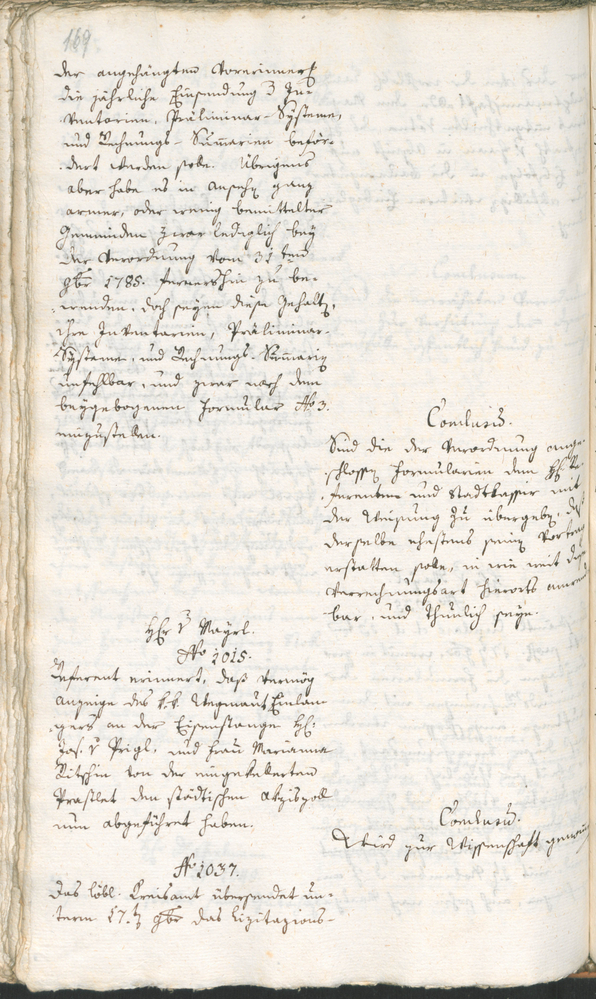 169
der angehängten Vorerinnerg
die jährliche Einsendung 3 In-
ventarien, Präliminar-Systeme,
und Rechnungs-Summarien beför-
dert werden solle. Übrigens
aber habe es in Ansehg ganz
armer, oder wenig bemittelter
Gemeinden zwar lediglich bey
der Verordnung vom 31ten
9br 1785. fernershin zu be-
wenden, doch seyen diese gehalten,
ihre Inventarien, Präliminar-
Systeme, und Rechnungs-Summarien
unfehlbar, und zwar nach dem
beygebogenen Formular No 3.
einzustellen.
Conclusum.
Sind die der Verordnung ange-
schlossen Formularien dem Hh. Re-
ferenten und Stadtkassir mit
der Weisung zu übergeben, daß
derselbe ehestens seinen Vortrag
erstatten solle, in wie weit diese
Verrechnungsart hierorts anwend
bar, und thunlich seye.
Hhr v Mayrl.
No 1015.
Referent erinnert, daß vermög
Anzeige des k.k. Wegmaut Einlan-
gers an der Eisenstange Hh.
Jos. v Prigl, und Frau Marianna
von der eingekellerten
Praschlet den städtischen
nun abgeführet haben.
Conclusum.
Wird zur Wissenschaft genommen
No 1037.
Das löbl. Kreisamt übersendet un-
term 17. 9br das Lizitazions-